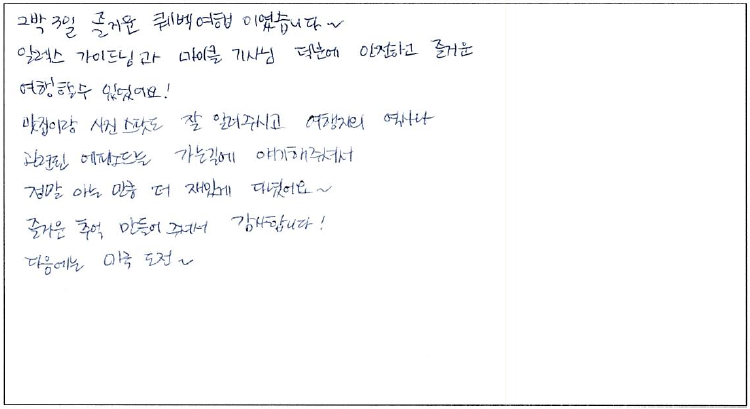 2박 3일 즐거운 퀘백여행 이였습니다~
알렉스 가이드님과 마이클 기사님 덕분에 안전하고 즐거운
여행할수 있었어요!
맛집이랑 사진스팟도 잘 알려주시고 여행지의 역사나
관련된 에피소드들 가는길에 얘기해주셔서
정말 아는 만큼 더 재밌게 다녔어요~
즐거운 추억 만들어 주셔서 감사합니다!
다음에는 미국 도전~